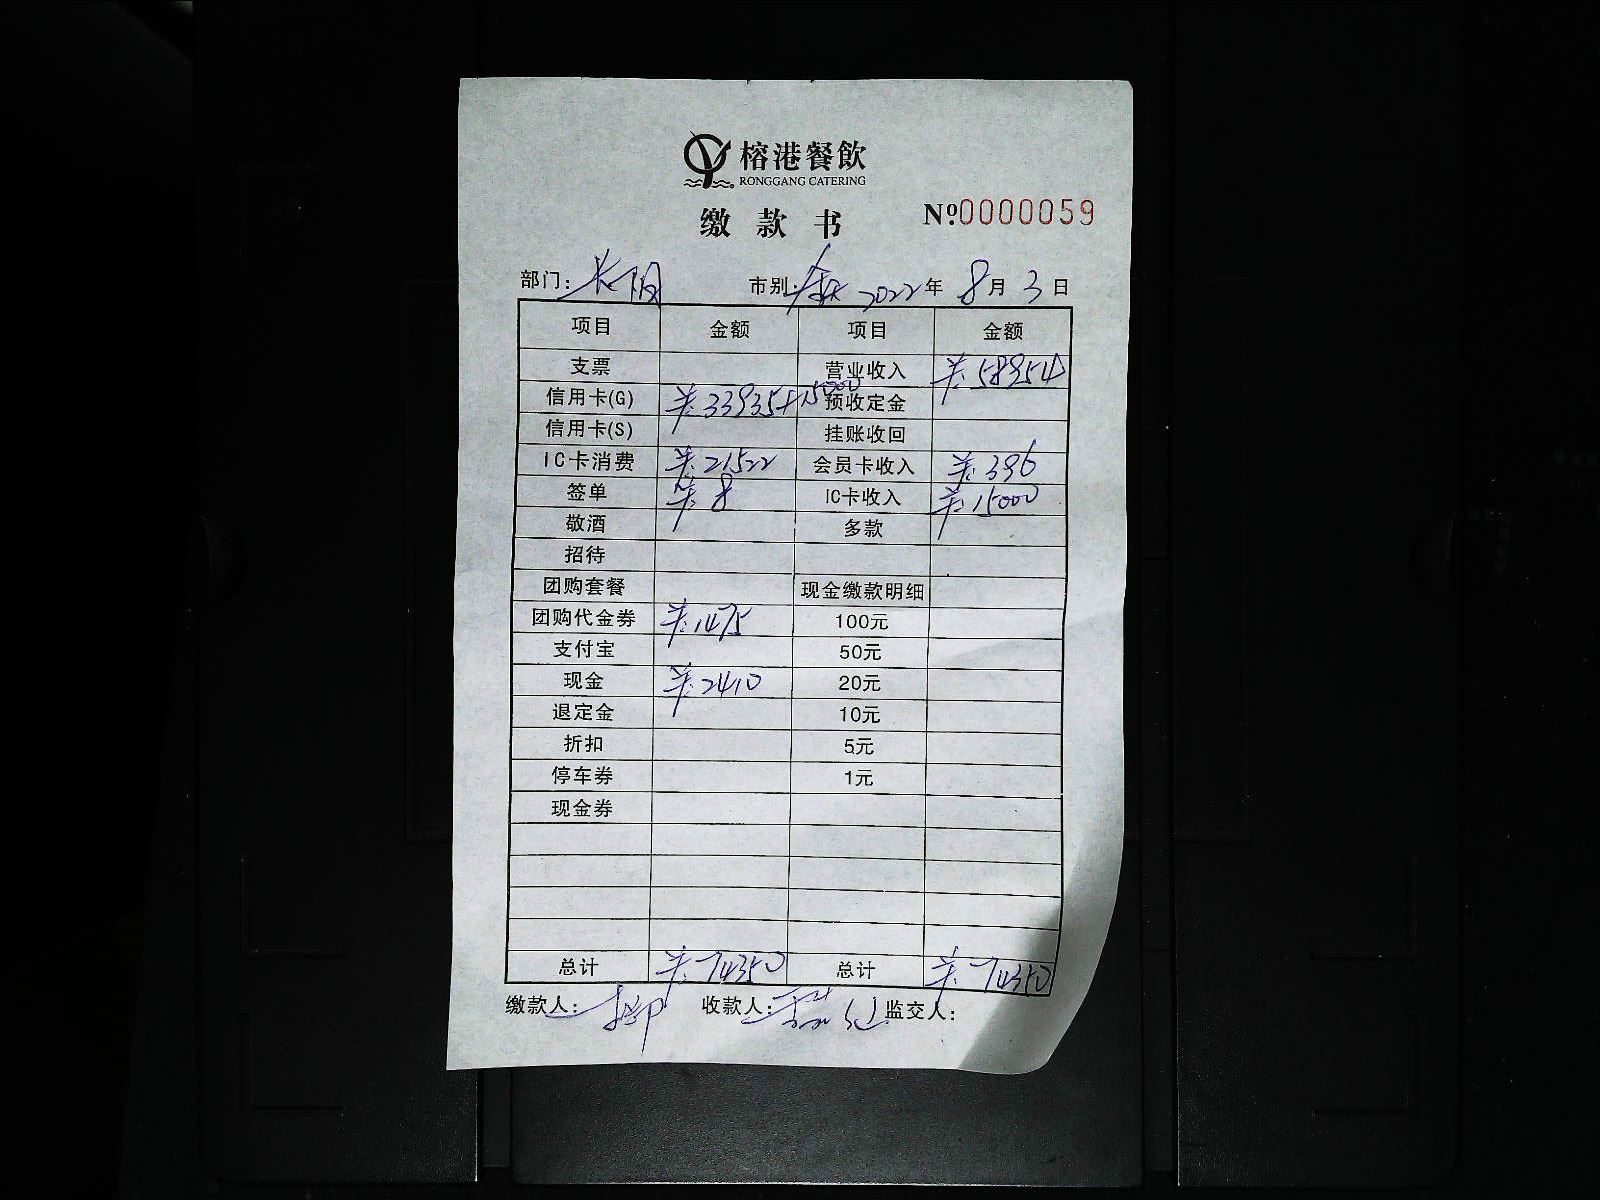 榕港餐飲
RONGGANG CATERING
缴款书
№:0000059
部门： 市别： 2022年 8月 3日
项目 金额 项目 金额
支票 营业收入 ¥:58954
信用卡(G) ¥:33935+15000 预收定金
信用卡(S) 挂账收回
IC卡消费 ¥:21522 会员卡收入 ¥:396
签单 ¥:8 IC卡收入 ¥:15000
敬酒 多款
招待
团购套餐 现金缴款明细
团购代金券 ¥:1475 100元
支付宝 50元
现金 ¥:2410 20元
退定金 10元
折扣 5元
停车券 1元
现金券
总计 ¥:74350 总计 ¥:74350
缴款人： 收款人： 监交人：